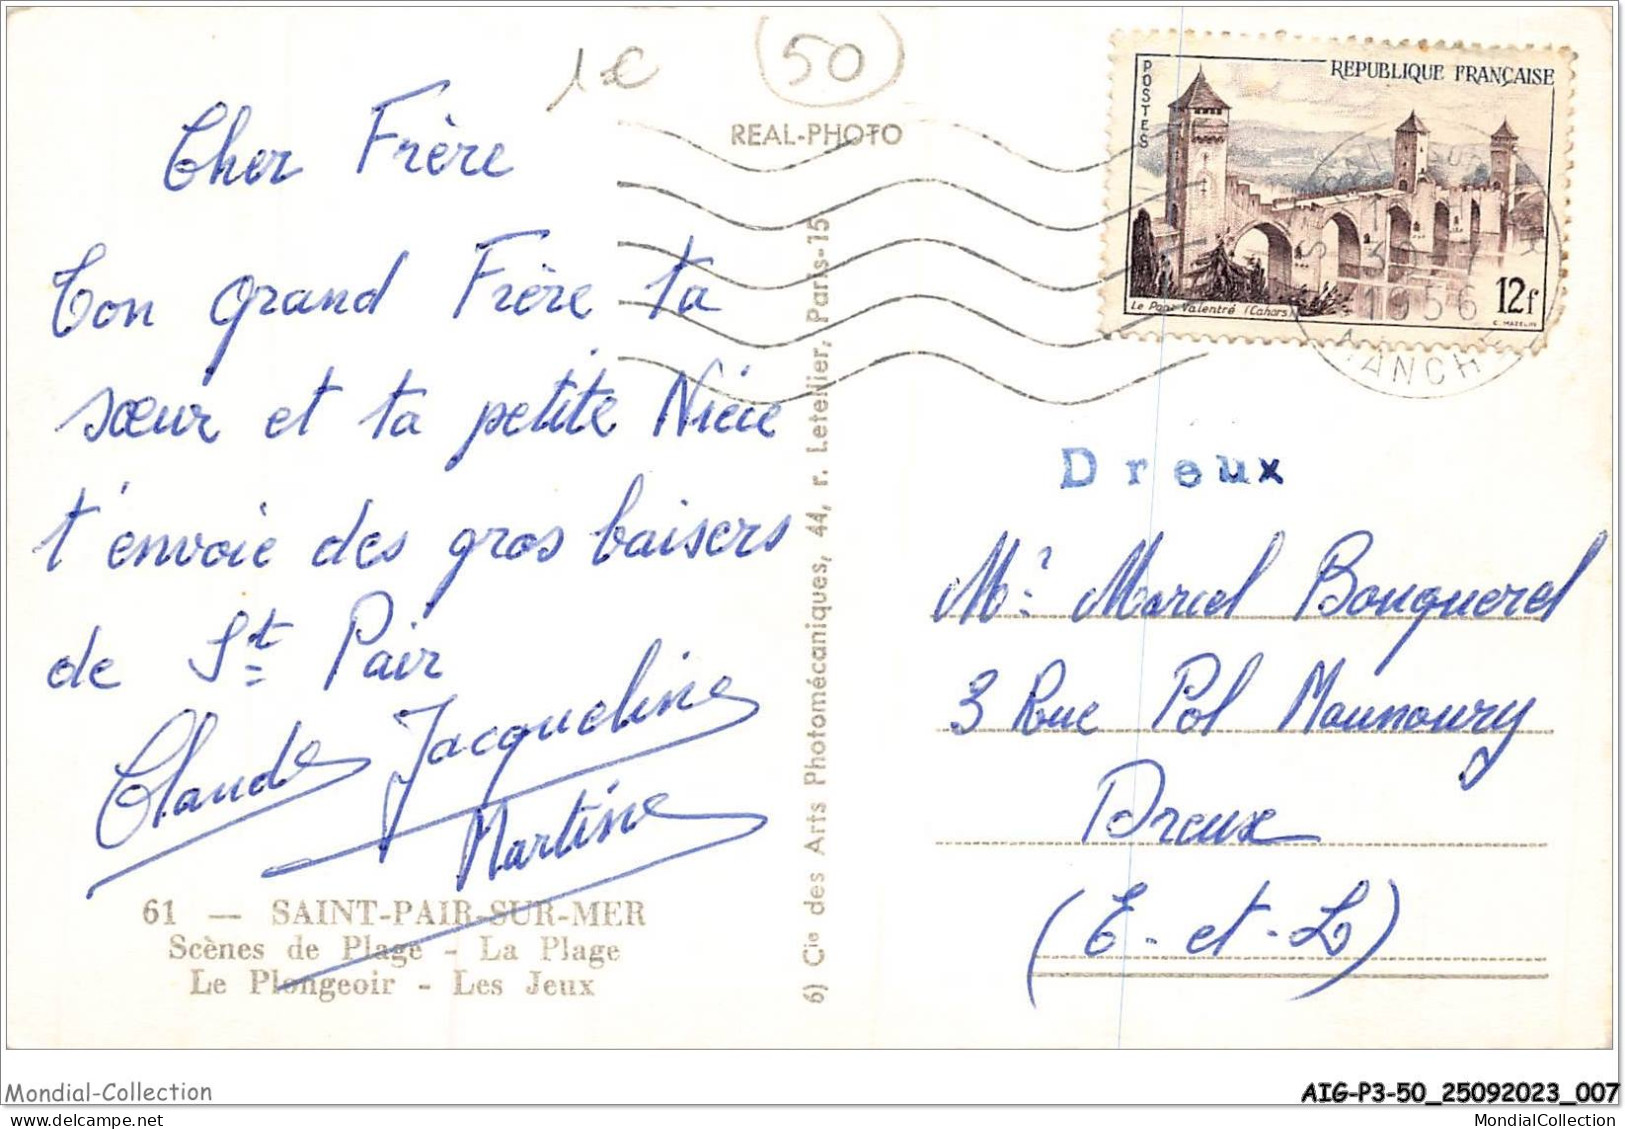 1€
50
REAL-PHOTO
Cher Frère
Ton grand Frère ta
sœur et ta petite Nièce
t'envoie des gros baisers
de St Pair
Claude Jacqueline
Martine
61 — SAINT-PAIR-SUR-MER
Scènes de Plage - La Plage
Le Plongeoir - Les Jeux
6) Cie des Arts Photomécaniques, 44, r. Letellier, Paris-15
POSTES
REPUBLIQUE FRANÇAISE
Le Pont Valentré (Cahors)
12f
C. MAZELIN
1956
MANCHE
Dreux
Mr Marcel Bouquerel
3 Rue Pol Maunoury
Dreux
(E-et-L)
Mondial-Collection
AIG-P3-50_25092023_007
123
MondialCollection